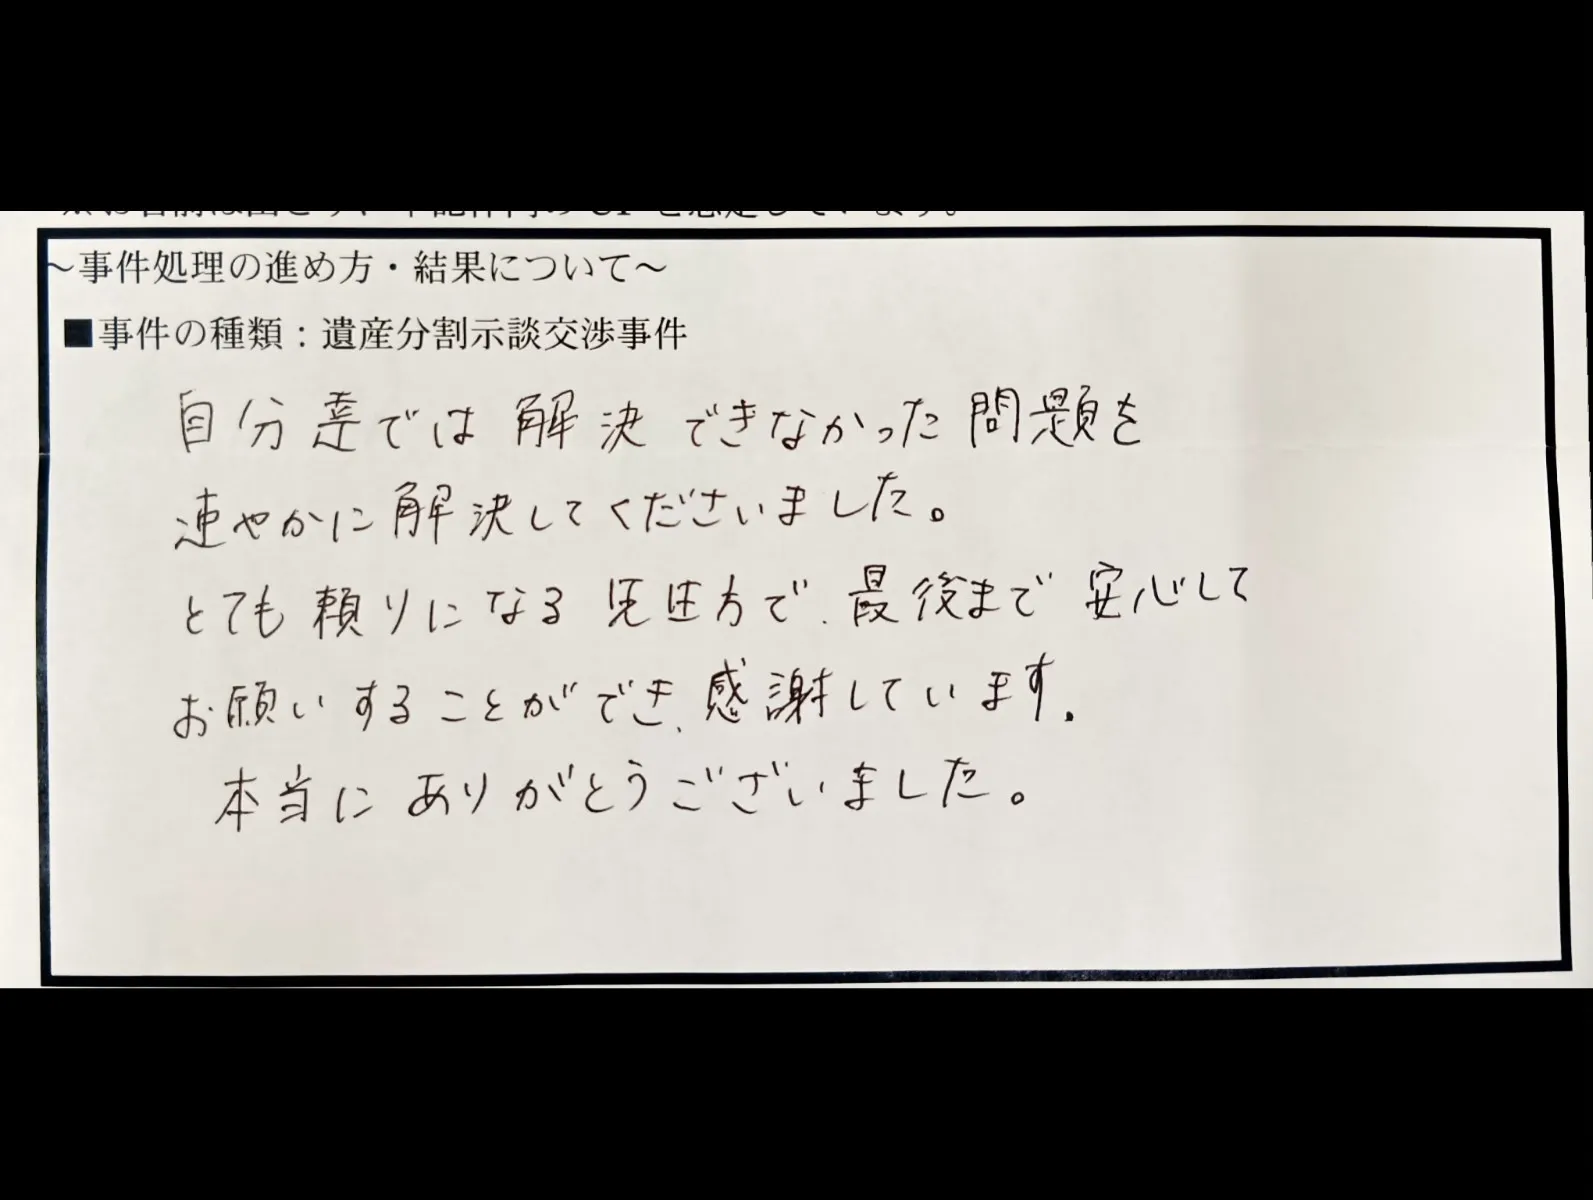 ~事件処理の進め方・結果について~
■事件の種類：遺産分割示談交渉事件
自分達では解決できなかった問題を
速やかに解決してくださいました。
とても頼りになる方で、最後まで安心して
お願いすることができ、感謝しています。
本当にありがとうございました。